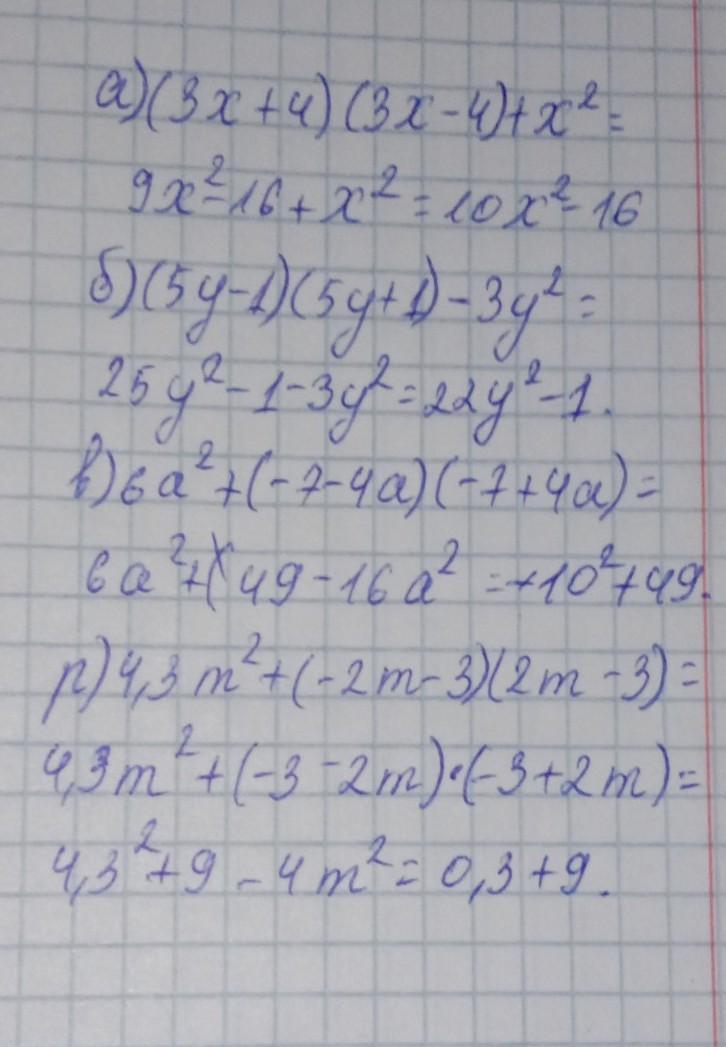 а)(3x+4)(3x-4)+x²=
9x²-16+x²=10x²-16
б)(5y-1)(5y+1)-3y²=
25y²-1-3y²=22y²-1.
в)6a²+(-7-4a)(-7+4a)=
6a²+(49-16a²=-10²+49.
г)4,3m²+(-2m-3)(2m-3)=
4,3m²+(-3-2m)·(-3+2m)=
4,3²+9-4m²=0,3+9.